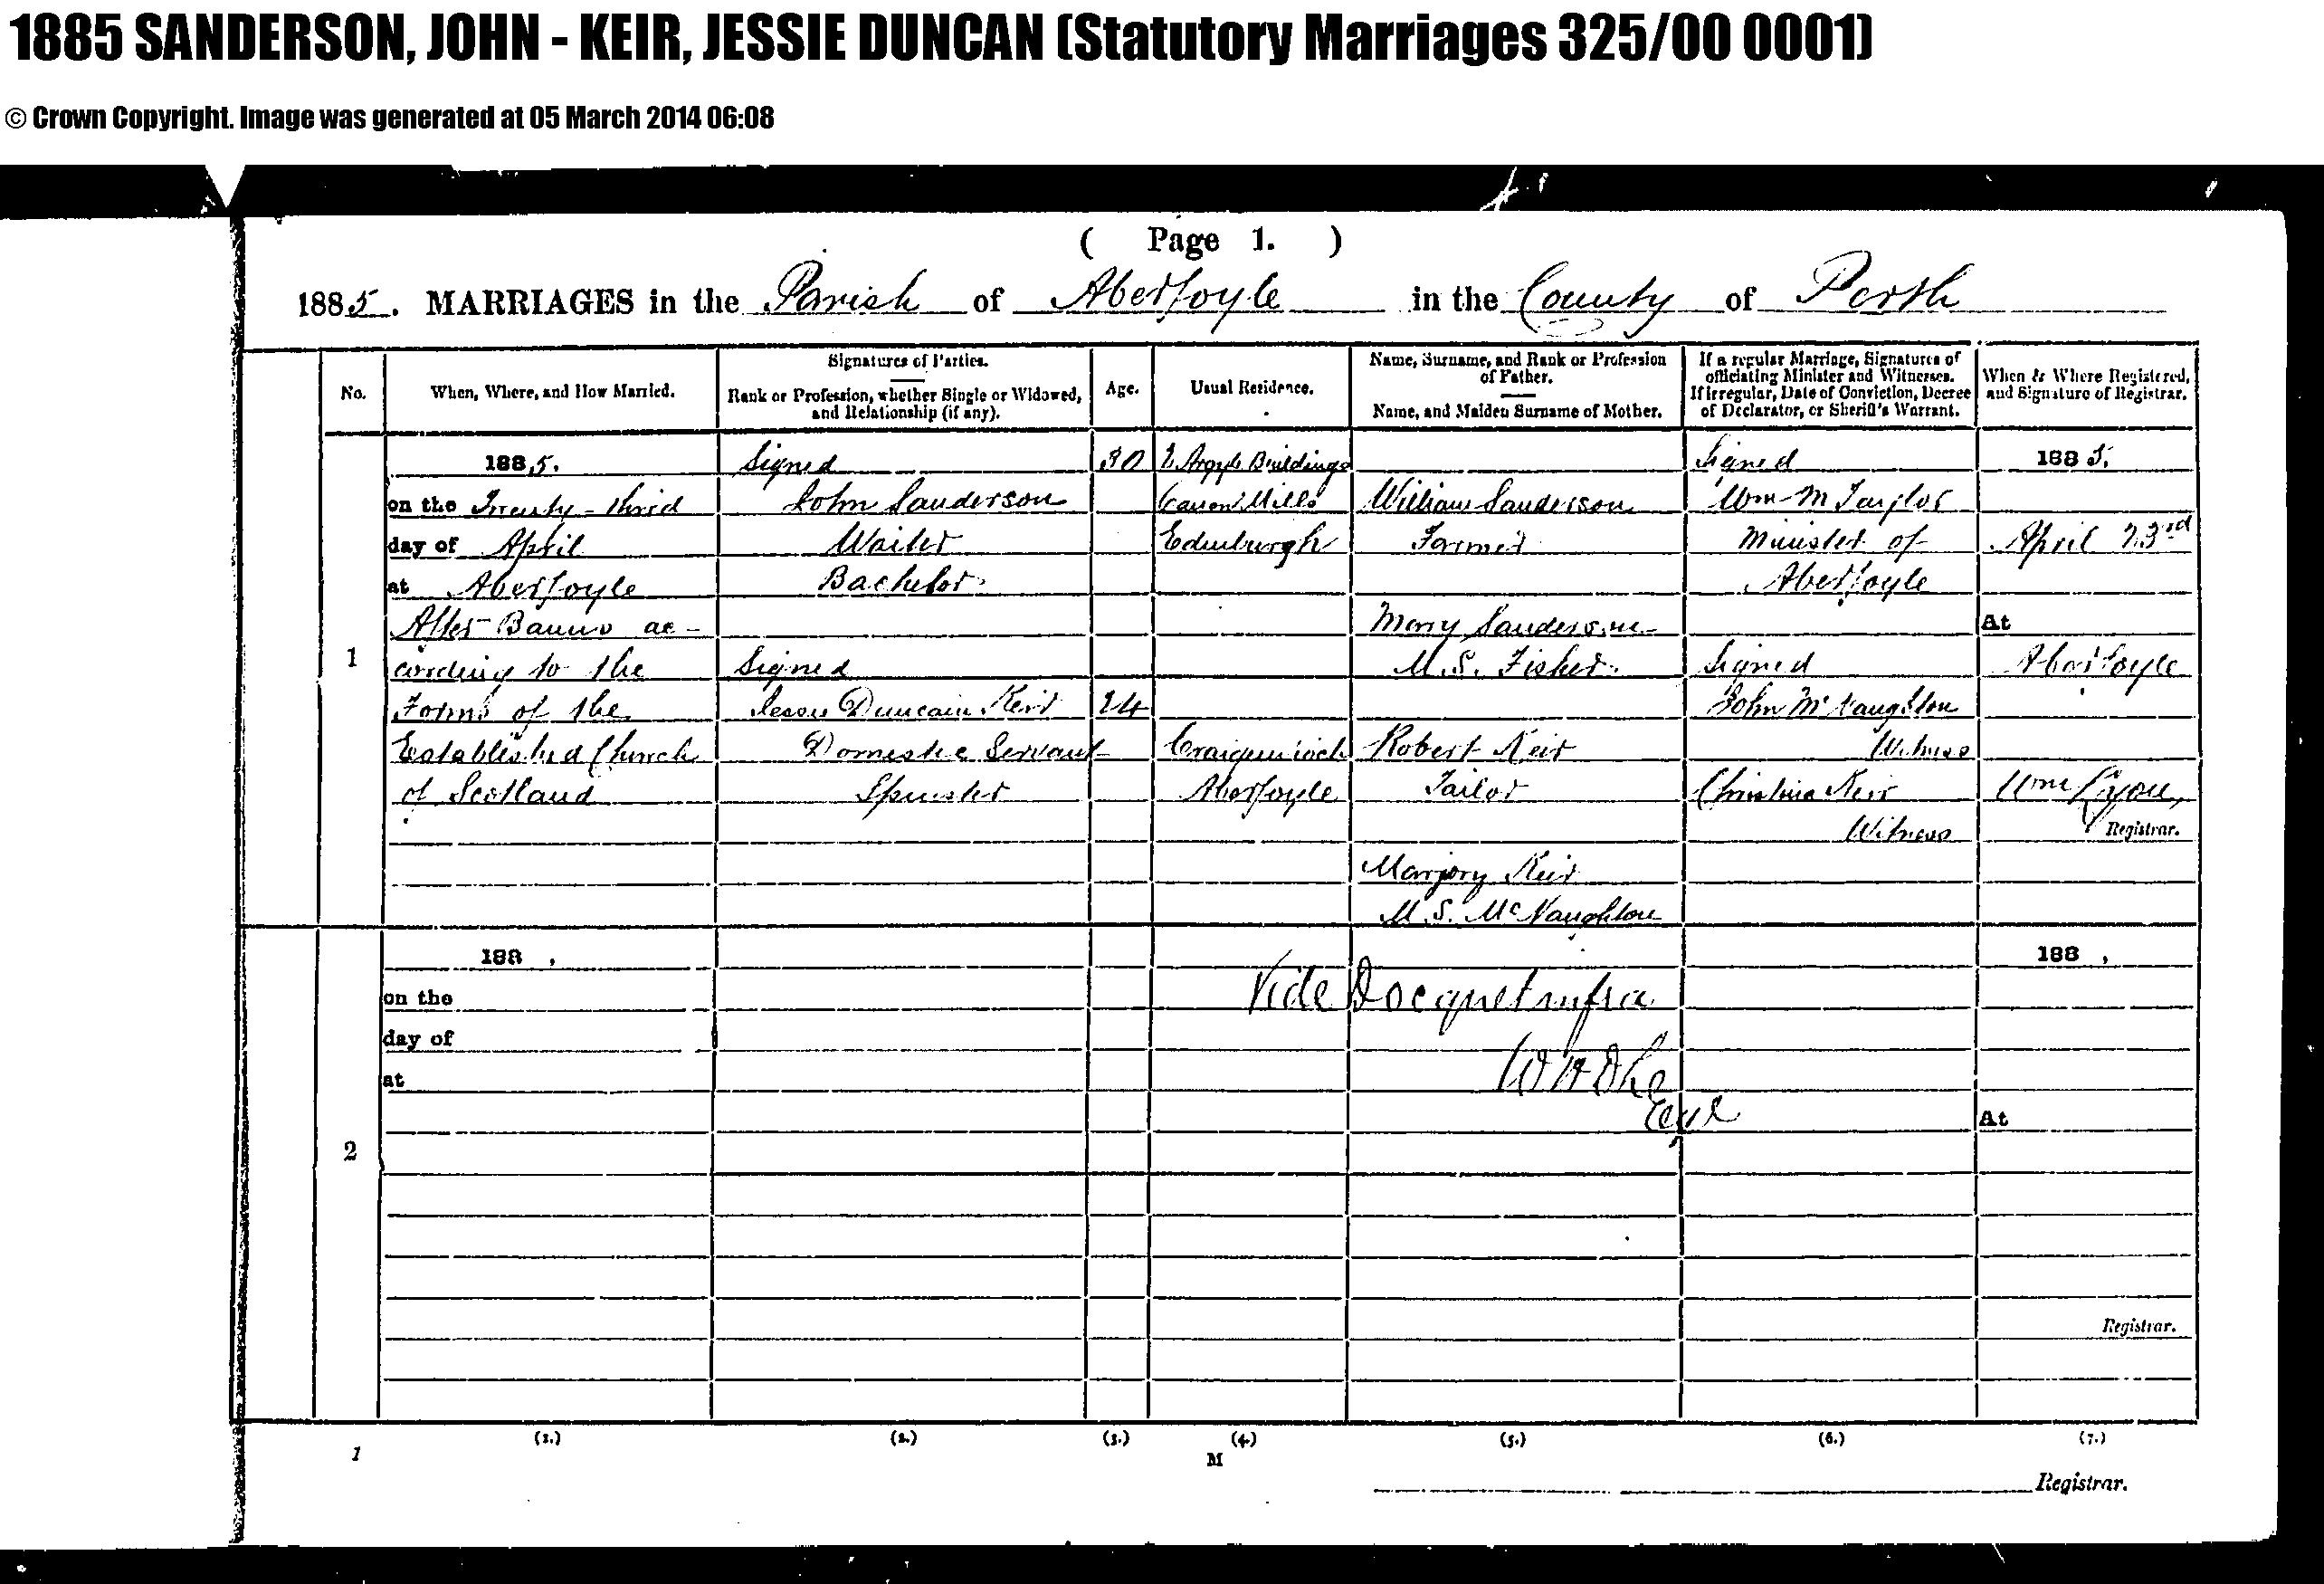 1885 SANDERSON, JOHN - KEIR, JESSIE DUNCAN (Statutory Marriages 325/00 0001)
© Crown Copyright. Image was generated at 05 March 2014 06:08
( Page 1. )
1885. MARRIAGES in the Parish of Aberfoyle in the County of Perth
No.
When, Where, and How Married.
Signatures of Parties.
Rank or Profession, whether Single or Widowed,
and Relationship (if any).
Age.
Usual Residence.
Name, Surname, and Rank or Profession
of Father.
Name, and Maiden Surname of Mother.
If a regular Marriage, Signatures of
officiating Minister and Witnesses.
If irregular, Date of Conviction, Decree
of Declarator, or Sheriff's Warrant.
When & Where Registered,
and Signature of Registrar.
1
1885.
on the Twenty-third
day of April
at Aberfoyle
After Banns ac-
cording to the
Forms of the
Established Church
of Scotland
Signed
John Sanderson
Waiter
Bachelor
Signed
Jessie Duncan Keir
Domestic Servant
Spinster
30
24
Argyle Buildings
Canon Mills
Edinburgh
Aberfoyle
William Sanderson
Farmer
Mary Sanderson
M.S. Fisher
Robert Keir
Tailor
Marjory Keir
M.S. McNaughton
Signed
Wm M Taylor
Minister of
Aberfoyle
Signed
John McNaughton
Witness
Christina Keir
Witness
1885.
April 23rd
At
Aberfoyle
Wm Lyon,
Registrar.
2
188 .
on the
day of
at
Vide Docquet infra
188 ,
At
Registrar.
1
(1.)
(2.)
(3.)
(4.)
(5.)
(6.)
(7.)
M
Registrar.